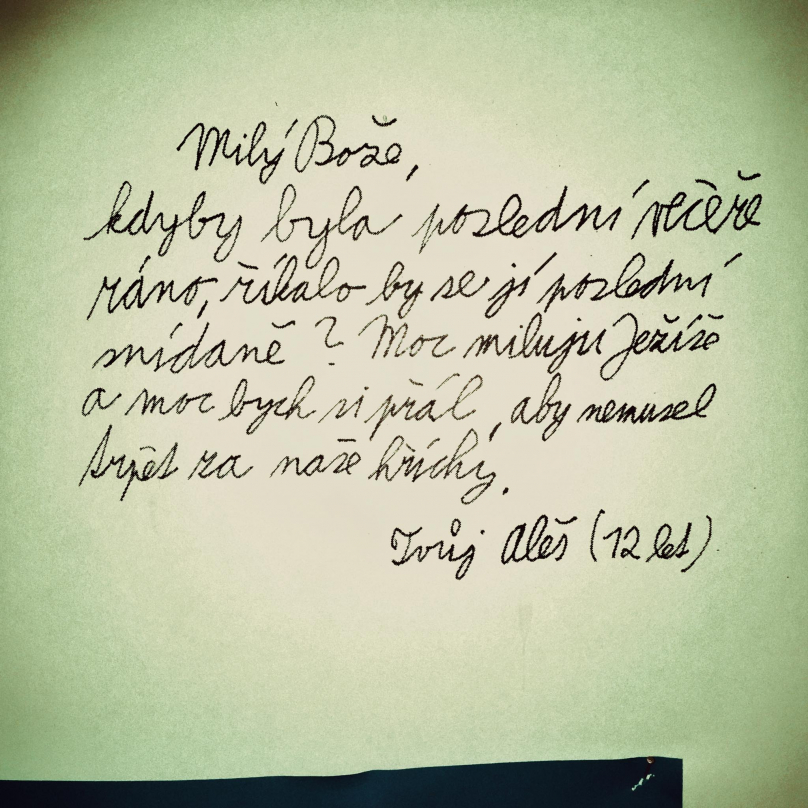 Milý Bože,
kdyby byla poslední večeře
ráno, říkalo by se jí poslední
snídaně? Moc miluju Ježíše
a moc bych si přál, aby nemusel
trpět za naše hříchy.
Tvůj Aleš (12 let)